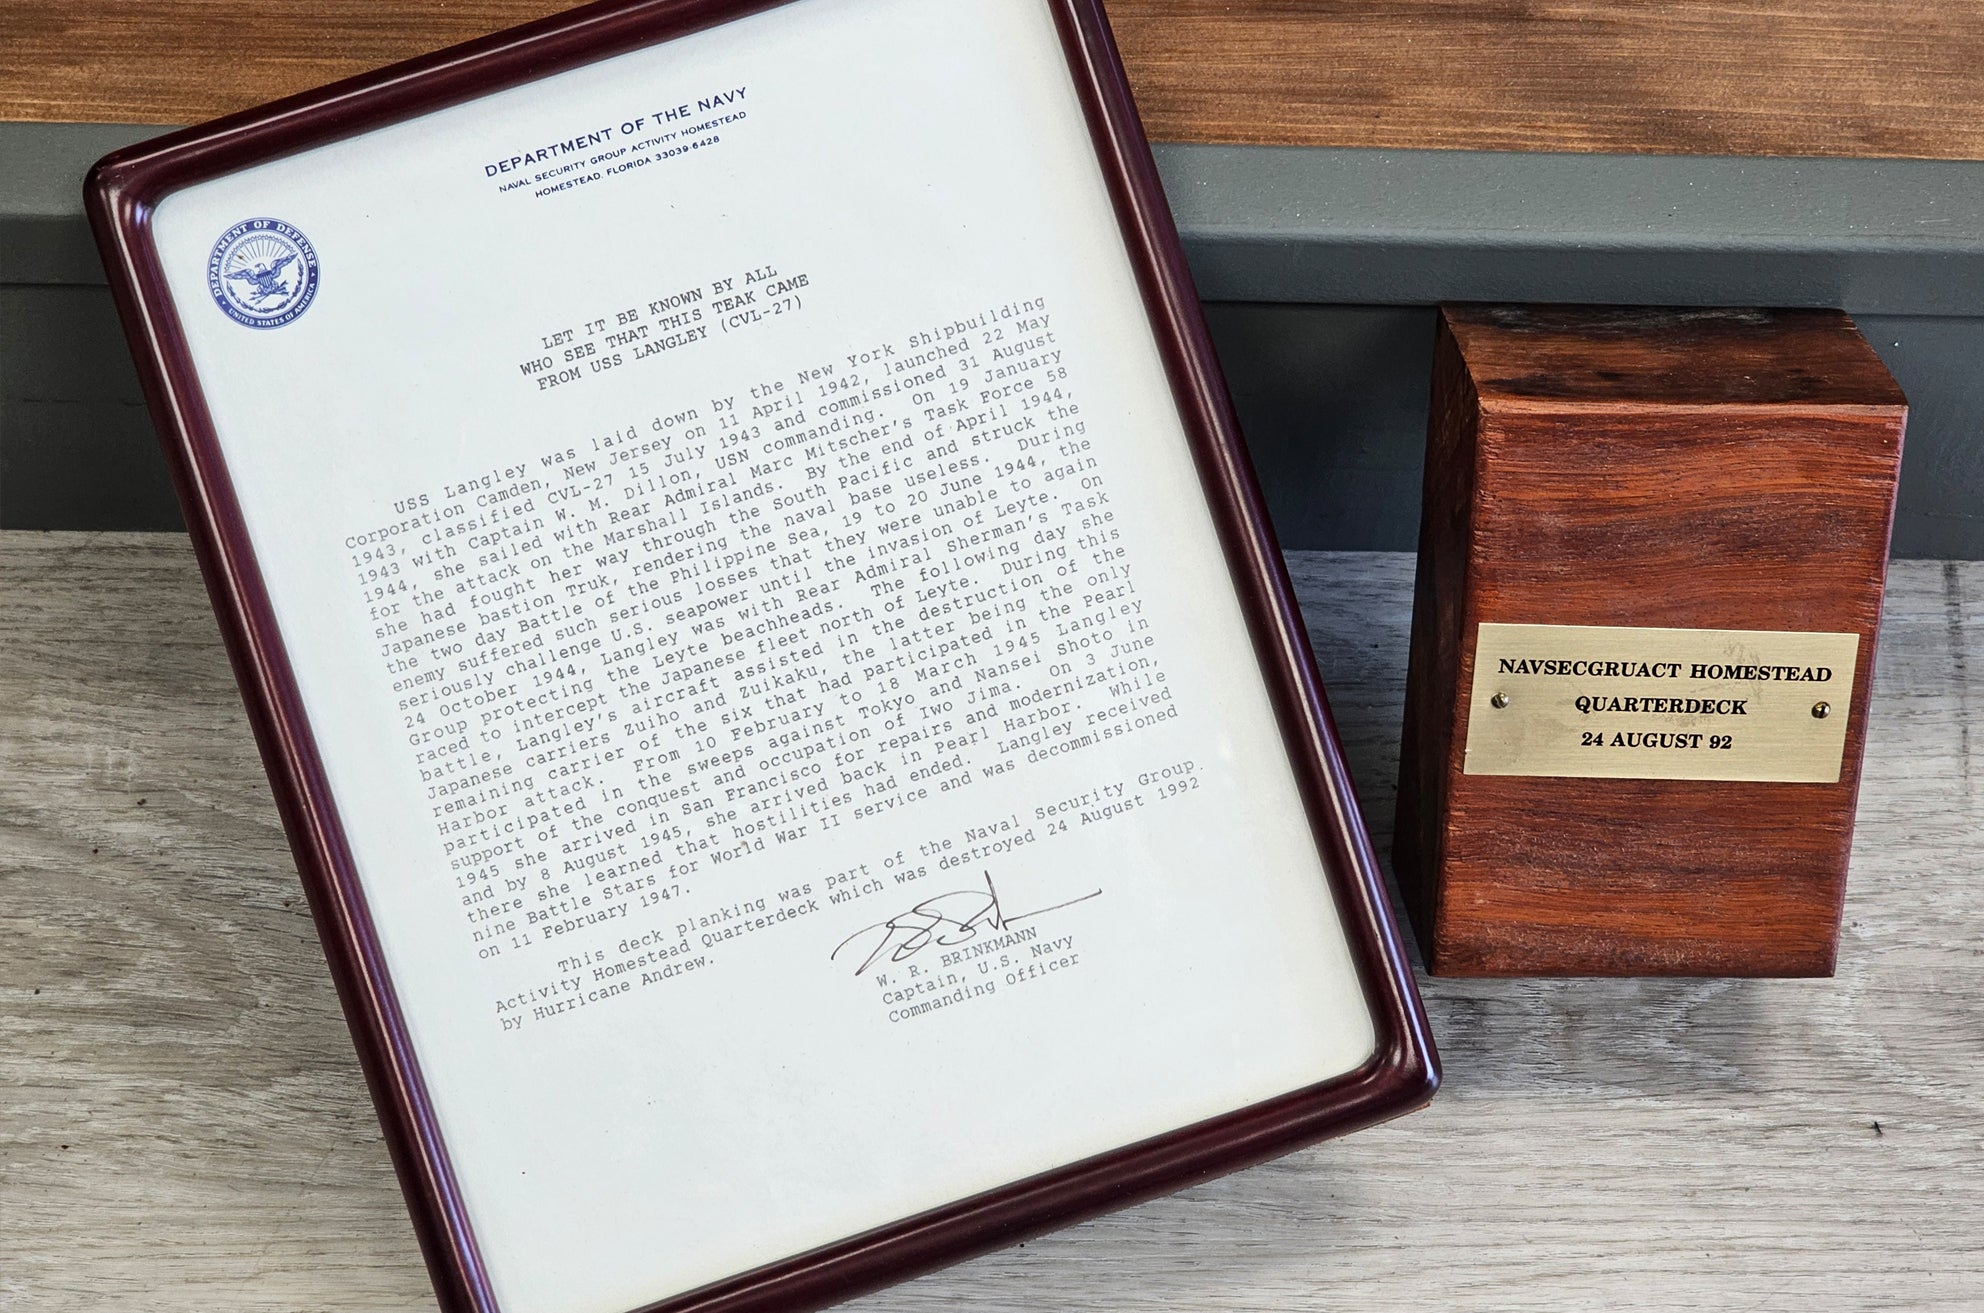 DEPARTMENT OF THE NAVY
NAVAL SECURITY GROUP ACTIVITY HOMESTEAD
HOMESTEAD, FLORIDA 33039-6428
DEPARTMENT OF DEFENSE
UNITED STATES OF AMERICA
LET IT BE KNOWN BY ALL
WHO SEE THAT THIS TEAK CAME
FROM USS LANGLEY (CVL-27)
USS Langley was laid down by the New York Shipbuilding
Corporation Camden, New Jersey on 11 April 1942, launched 22 May
1943, classified CVL-27 15 July 1943 and commissioned 31 August
1943 with Captain W. M. Dillon, USN commanding. On 19 January
1944, she sailed with Rear Admiral Marc Mitscher's Task Force 58
for the attack on the Marshall Islands. By the end of April 1944,
she had fought her way through the South Pacific and struck the
Japanese bastion Truk, rendering the naval base useless. During
the two day Battle of the Philippine Sea, 19 to 20 June 1944, the
enemy suffered such serious losses that they were unable to again
seriously challenge U.S. seapower until the invasion of Leyte. On
24 October 1944, Langley was with Rear Admiral Sherman's Task
Group protecting the Leyte beachheads. The following day she
raced to intercept the Japanese fleet north of Leyte. During this
battle, Langley's aircraft assisted in the destruction of the
Japanese carriers Zuiho and Zuikaku, the latter being the only
remaining carrier of the six that had participated in the Pearl
Harbor attack. From 10 February to 18 March 1945 Langley
participated in the sweeps against Tokyo and Nansei Shoto in
support of the conquest and occupation of Iwo Jima. On 3 June
1945 she arrived in San Francisco for repairs and modernization,
and by 8 August 1945, she arrived back in Pearl Harbor. While
there she learned that hostilities had ended. Langley received
nine Battle Stars for World War II service and was decommissioned
on 11 February 1947.
This deck planking was part of the Naval Security Group
Activity Homestead Quarterdeck which was destroyed 24 August 1992
by Hurricane Andrew.
W. R. BRINKMANN
Captain, U.S. Navy
Commanding Officer
NAVSECGRUACT HOMESTEAD
QUARTERDECK
24 AUGUST 92